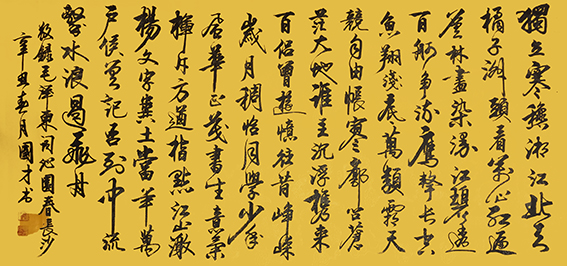 獨立寒穐湘江北去
橘子洲頭看萬山紅遍
层林盡染漫江碧透
百舸争流鷹擊长空
魚翔淺底萬類霜天
競自由悵寥廓問蒼
茫大地誰主沉浮攜来
百侣曾遊憶往昔崢嶸
歲月稠恰同學少年
風華正茂書生意氣
揮斥方遒指點江山激
楊文字糞土當年萬
户侯曾記否到中流
擊水浪遏飛舟
敬録毛澤東词沁園春長沙
辛丑春月國才书